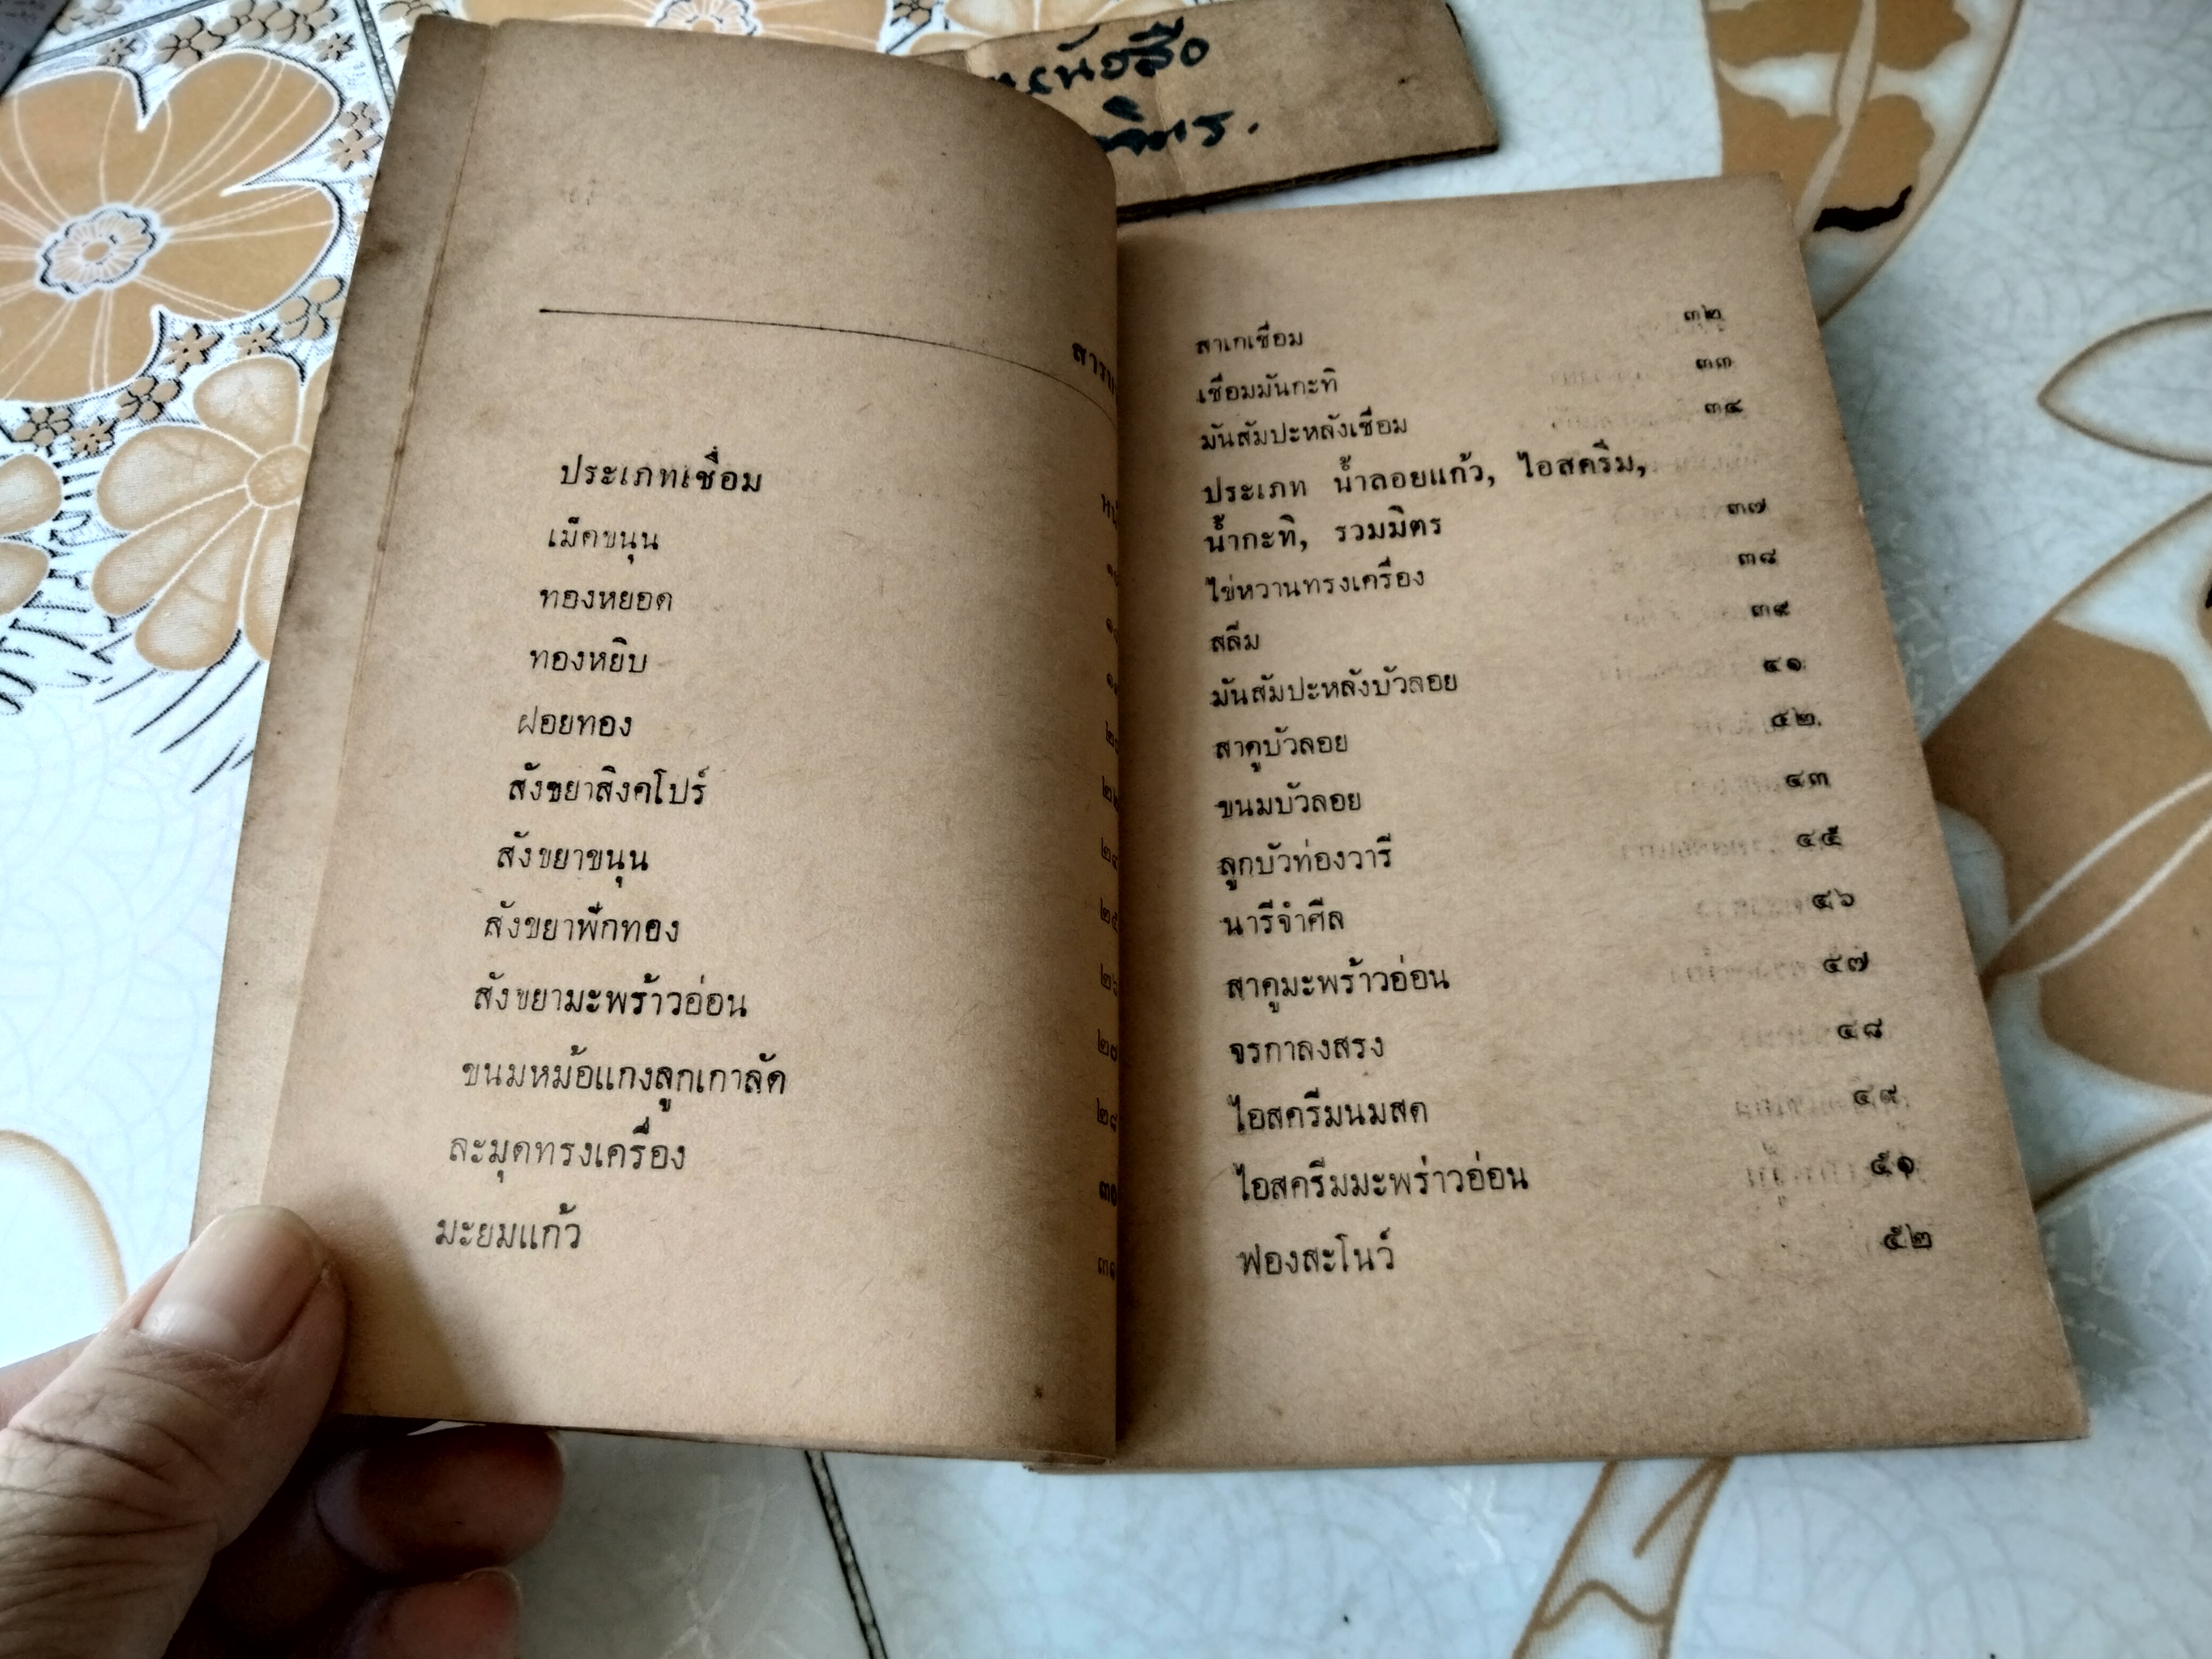 สารบ
ประเภทเชื่อม
เม็ดขนุน
ทองหยอด
ทองหยิบ
ฝอยทอง
สังขยาสิงคโปร์
สังขยาขนุน
สังขยาฟักทอง
สังขยามะพร้าวอ่อน
ขนมหม้อแกงลูกเกาลัด
ละมุดทรงเครื่อง
มะยมแก้ว
สาเกเชื่อม ๓๒
เชื่อมมันกะทิ ๓๓
มันสัมปะหลังเชื่อม ๓๔
ประเภท น้ำลอยแก้ว, ไอสครีม,
น้ำกะทิ, รวมมิตร
ไข่หวานทรงเครื่อง ๓๗
สลิ่ม ๓๘
มันสัมปะหลังบัวลอย ๓๙
สาคูบัวลอย ๔๑
ขนมบัวลอย ๔๒
ลูกบัวท่องวารี ๔๓
นารีจำศีล ๔๕
สาคูมะพร้าวอ่อน ๔๖
จรกาลงสรง ๔๗
ไอสครีมนมสด ๔๘
ไอสครีมมะพร่าวอ่อน ๔๙
ฟองสะโนว์ ๕๑
๕๒